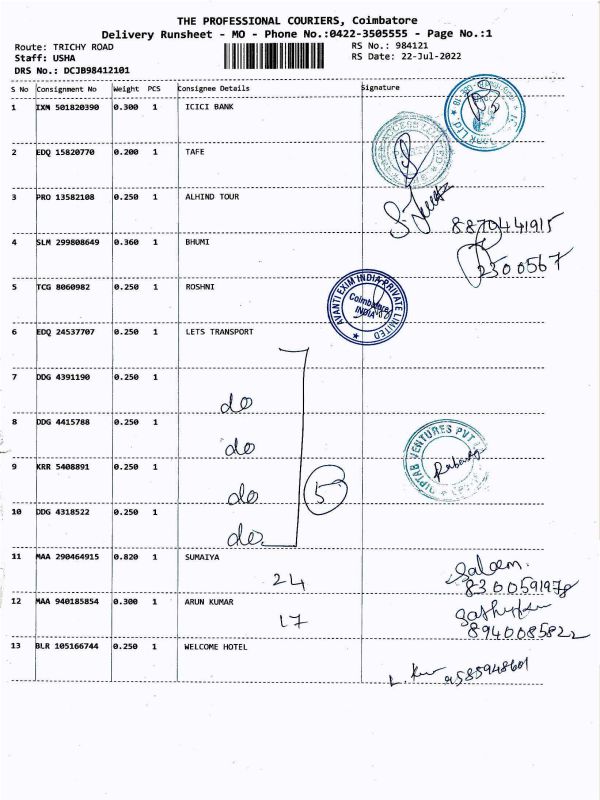 THE PROFESSIONAL COURIERS, Coimbatore
Delivery Runsheet - MO - Phone No.:0422-3505555 - Page No.:1
Route: TRICHY ROAD RS No.: 984121
Staff: USHA RS Date: 22-Jul-2022
DRS No.: DCJB98412101
S No Consignment No Weight PCS Consignee Details Signature
1 IXM 501820390 0.300 1 ICICI BANK
2 EDQ 15820770 0.200 1 TAFE
3 PRO 13582108 0.250 1 ALHIND TOUR
8870441915
4 SLM 299808649 0.360 1 BHUMI
2300567
5 TCG 8060982 0.250 1 ROSHNI
AVANTI EXIM INDIA PRIVATE LIMITED
Coimbatore
INDIA
6 EDQ 24537707 0.250 1 LETS TRANSPORT
7 DDG 4391190 0.250 1
do
8 DDG 4415788 0.250 1
do
VENTURES PVT
9 KRR 5408891 0.250 1
do 5
10 DDG 4318522 0.250 1
do
11 MAA 290464915 0.820 1 SUMAIYA
Saleem
24 8300591978
12 MAA 940185854 0.300 1 ARUN KUMAR
17 8940085822
13 BLR 105166744 0.250 1 WELCOME HOTEL
9585948601